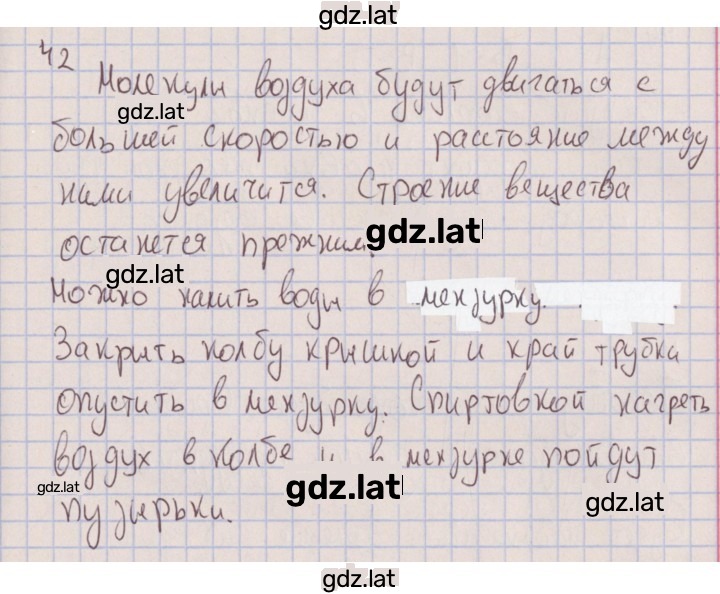 gdz.lat
42
Молекулы воздуха будут двигаться с
gdz.lat
большей скоростью и расстояние между
ними увеличится. Строение вещества
gdz.lat
останется прежним.
gdz.lat
Можно налить воды в мензурку.
Закрыть колбу крышкой и край трубка
опустить в мензурку. Спиртовкой нагреть
воздух в колбе и в мензурке пойдут
gdz.lat
gdz.lat
gdz.lat
пузырьки.
gdz.lat